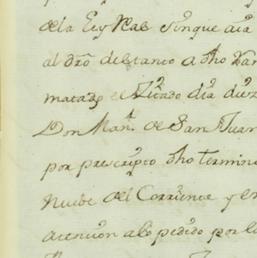 de la Ley Real sin que aia
al dro del tanto a dho
matado el citado dia diez
Don Man.l de San Juan
por prescripto dho termino
Nuebe del Corriente y en
atencion a lo pedido por